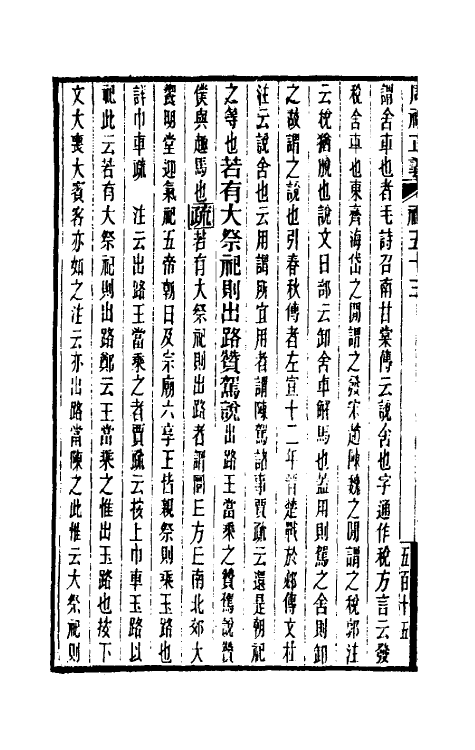 周禮正義 禮五十三 五百十五
謂舍車也者毛詩召南甘棠傳云說舍也字通作稅方言云發
稅舍車也東齊海岱之閒謂之發宋趙陳魏之閒謂之稅郭注
云稅猶脫也說文日部云卸舍車解馬也蓋用則駕之舍則卸
之故謂之說也引春秋傳者左宣十二年晉楚戰於邲傳文杜
注云說舍也云用謂所宜用者謂陳駕諸事賈疏云還是朝祀
之等也若有大祭祀則出路贊駕說出路王當乘之贊駕說贊
僕與趣馬也疏若有大祭祀則出路者謂圜丘方丘南北郊大
饗明堂迎氣祀五帝朝日及宗廟六享王皆親祭則乘玉路也
詳巾車疏　注云出路王當乘之者賈疏云按上巾車玉路以
祀此云若有大祭祀則出路鄭云王當乘之惟出玉路也按下
文大喪大賓客亦如之注云亦出路當陳之此惟云大祭祀則